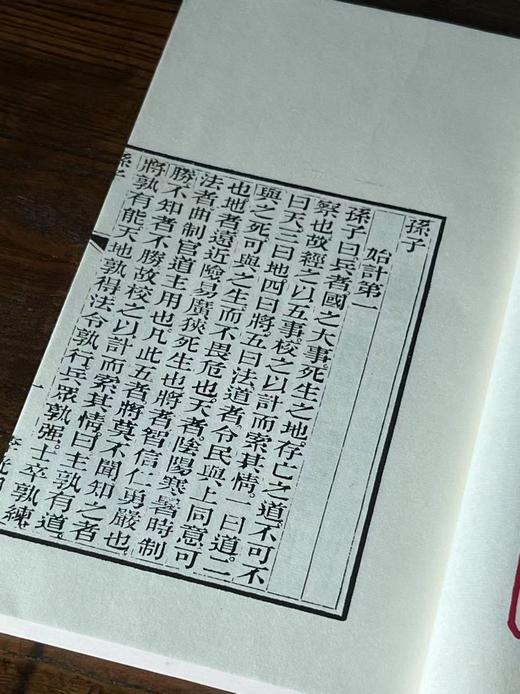 孫子
始計第一
孫子曰兵者國之大事死生之地存亡之道不可不
察也故經之以五事校之以計而索其情一曰道二
曰天三曰地四曰將五曰法道者令民與上同意可
與之死可與之生而不畏危也天者陰陽寒暑時制
也地者遠近險易廣狹死生也將者智信仁勇嚴也
法者曲制官道主用也凡此五者將莫不聞知之者
勝不知者不勝故校之以計而索其情曰主孰有道
將孰有能天地孰得法令孰行兵眾孰強士卒孰練
孫子
一